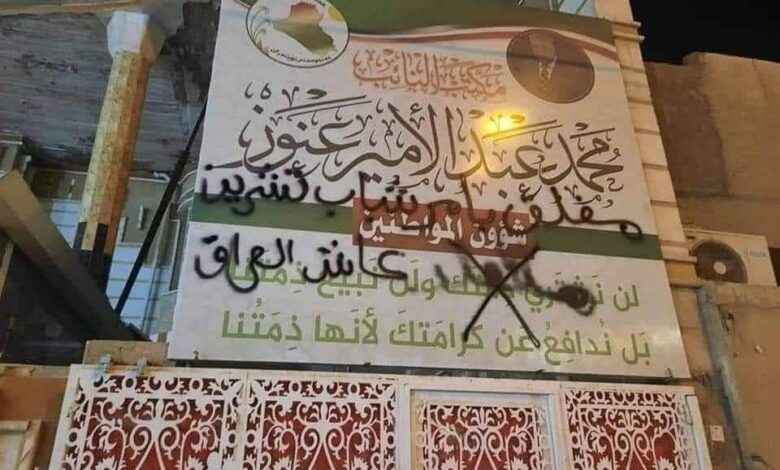 مكتب النائب
محمد عبد الأمير عنوز
مغلق بأمر شباب تشرين
شؤون المواطنين
عاش العراق
لن نَشتري ولَن نَبيعَ ذِمَتنا
بَل نُدافعُ عن كرامَتكَ لأنها ذِمَتُنا